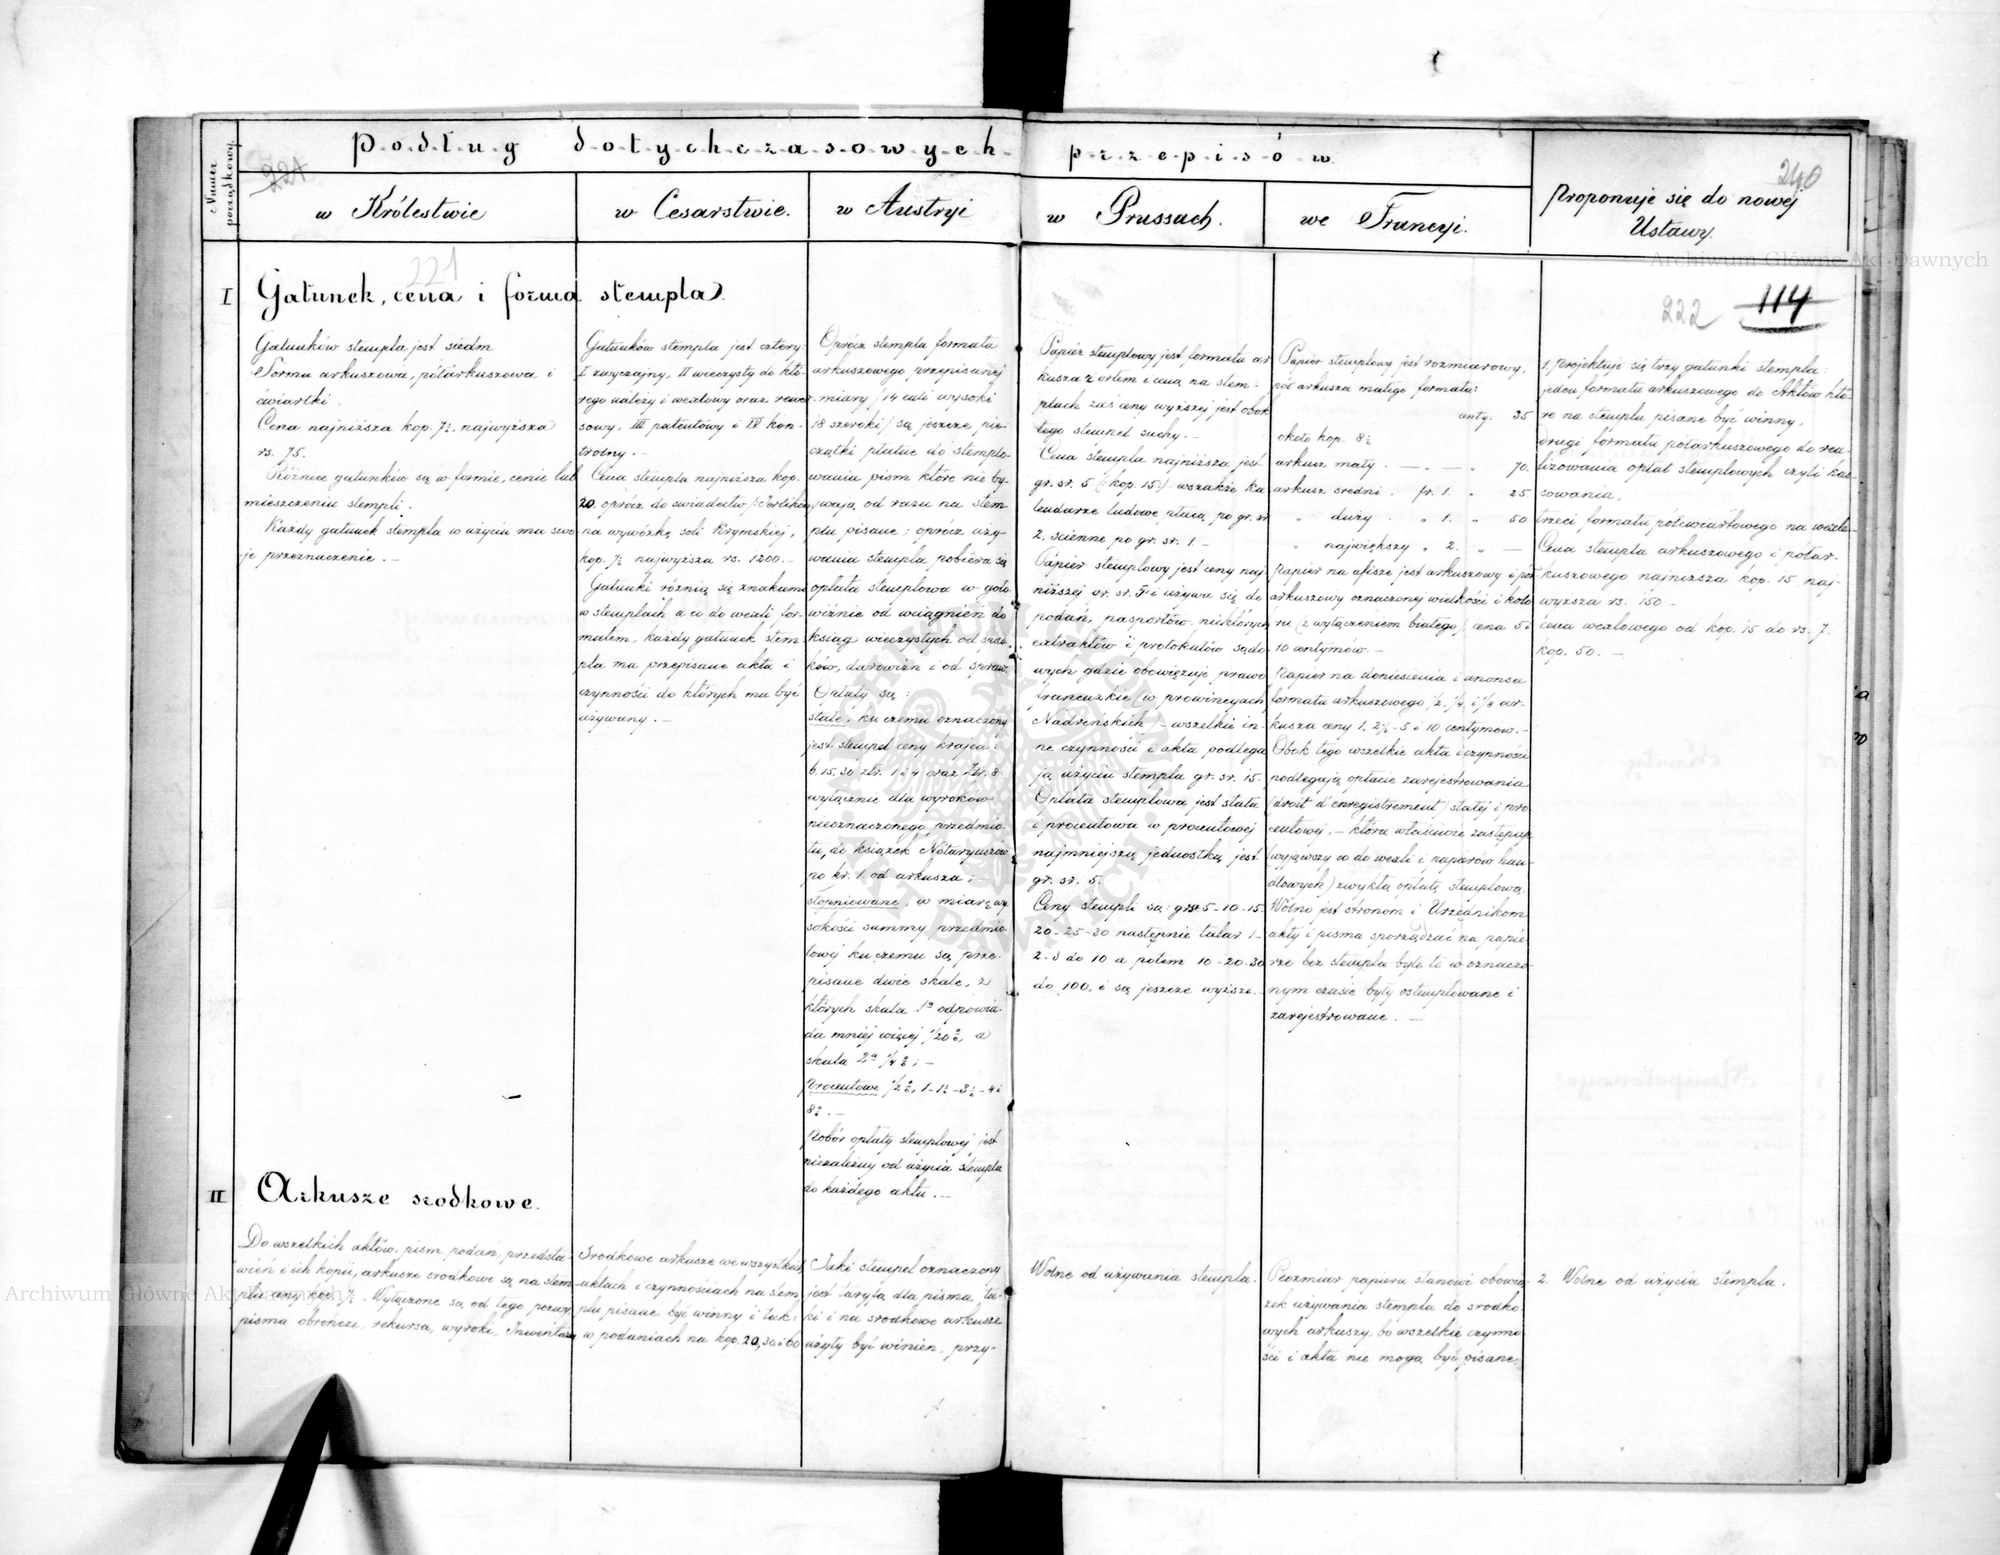 Numer porządkowy.
Podług dotychczasowych przepisów
w Królestwie
w Cesarstwie.
w Austryi
w Prussach.
we Francyi.
Proponuje się do nowej
Ustawy.
221
240
221
222
114
I
Gatunek, cena i forma stempla.
Gatunków stempla jest siedm
Forma arkuszowa, półarkuszowa i
ćwiartki.
Cena najniższa kop. 7½. najwyższa
rs. 75.
Różnice gatunków są w formie, cenie lub
umieszczeniu stempli.
Każdy gatunek stempla w użyciu ma swo-
je przeznaczenie. —
Gatunków stempla jest cztery:
I zwyczajny, II wieczysty do któ-
rego należy i wexlowy oraz rewer-
sowy, III patentowy i IV kon-
trolny. —
Cena stempla najniższa kop.
20. oprócz do świadectw
na wywózkę soli Krymskiej,
kop. 7½ najwyższa rs. 1200. —
Gatunki różnią się znakami
w stemplach a co do wexli for-
matem, każdy gatunek stem-
pla ma przepisane akta i
czynności do których ma być
używany. —
Oprócz stempla formatu
arkuszowego przepisanej
miary / 14 cali wysoki
18 szeroki / są jeszcze pie-
czątki płatne do stemplo-
wania pism które nie by-
wają od razu na stem-
plu pisane; oprócz uży-
wania stempla pobiera się
opłata stemplowa w goto-
wiźnie od wciągnień do
ksiąg wieczystych od spad-
ków, darowizn i od spraw.
Opłaty są:
stałe, ku czemu oznaczony
jest stempel ceny krajca:
6. 15. 30 złr. 1 i 4 oraz złr. 8
wyłącznie dla wyroków
nieoznaczonego przedmio-
tu, do książek Notaryuszów
po kr. 1 od arkusza; —
stopniowane, w miarę wy-
sokości summy przedmio-
towej ku czemu są prze-
pisane dwie skale, z
których skala 1ª odpowia-
da mniej więcej 1/20 %, a
skala 2ª 1/4 %; —
Procentowe 1/2 %, 1 - 1½ - 3½ - 4 i
8%. —
Pobór opłaty stemplowej jest
niezależny od użycia stempla
do każdego aktu. —
Papier stemplowy jest formatu ar-
kusza z orłem i ceną na stem-
plach zaś ceny wyższej jest obok
tego stempel suchy. —
Cena stempla najniższa jest
gr. sr. 5 (: kop. 15 :) wszakże ka-
lendarze ludowe płacą po gr. sr
2. ścienne po gr. sr. 1 —
Papier stemplowy jest ceny naj-
niższej gr. sr. 5 i używa się do
podań, pasportów, niektórych
extraktów i protokułów sądo-
wych gdzie obowiązuje prawo
francuzkie (w prowincyach
Nadreńskich) — wszelkie in-
ne czynności i akta podlega-
ją użyciu stempla gr. sr. 15.
Opłata stemplowa jest stała
i procentowa w procentowej
najmniejszą jednostką jest
gr. sr. 5.
Ceny stempli są: gr sr. 5 - 10 - 15 -
20 - 25 - 30 następnie talar 1 -
2 - 3 do 10 a potem 10 - 20 - 30
do 100, i są jeszcze wyższe. —
Papier stemplowy jest rozmiarowy,
pół arkusza małego formatu:
centy. 35
około kop. 8½
arkusz mały . — — „ 70.
arkusz średni . fr. 1. „ 25
„ duży . „ 1. „ 50
„ największy „ 2. „ —
Papier na afisze jest arkuszowy i pół
arkuszowy oznaczonej wielkości i kolo-
ru (z wyłączeniem białego), cena 5 i
10 centymów. —
Papier na doniesienia i anonsa
formatu arkuszowego 1/2, 1/4, i 1/8 ar-
kusza ceny 1. 2½ - 5 i 10 centymów. —
Obok tego wszelkie akta i czynności
podlegają opłacie zarejestrowania
(droit d'enregistrement) stałej i pro-
centowej, — która właściwie zastępuje
(wyjąwszy co do wexli i papierów han-
dlowych) zwykłą opłatę stemplową.
Wolno jest stronom i Urzędnikom
akty i pisma sporządzać na papie-
rze bez stempla byle te w oznaczo-
nym czasie były ostemplowane i
zarejestrowane. —
1. Projektuje się trzy gatunki stempla:
jeden formatu arkuszowego do Aktów któ-
re na stemplu pisane być winny,
drugi formatu półarkuszowego do rea-
lizowania opłat stemplowych czyli kas-
sowania,
trzeci formatu półćwiartowego na wexle.—
Cena stempla arkuszowego i półar-
kuszowego najniższa kop. 15 naj-
wyższa rs. 150 —
cena wexlowego od kop. 15 do rs. 7.
kop. 50. —
II
Arkusze srodkowe.
Do wszelkich aktów, pism, podań, przedsta-
wień i ich kopii, arkusze srodkowe są na stem-
plu ceny kop. 7½ — Wyłączone są od tego pozwy
pisma obrończe, rekursa, wyroki, Inwentarza
Srodkowe arkusze we wszystkich
aktach i czynnościach na stem-
plu pisane być winny i tak:
w podaniach na kop. 20, 30 i 60
Jaki stempel oznaczony
jest taryfą dla pisma, ta-
ki i na srodkowe arkusze
użyty być winien, przy-
Wolne od używania stempla.
Rozmiar papieru stanowi obowią-
zek używania stempla do srodko-
wych arkuszy, bo wszelkie czynno-
ści i akta nie mogą być pisane,
2. Wolne od użycia stempla.
Archiwum Główne Akt Dawnych
Archiwum Główne Akt Dawnych